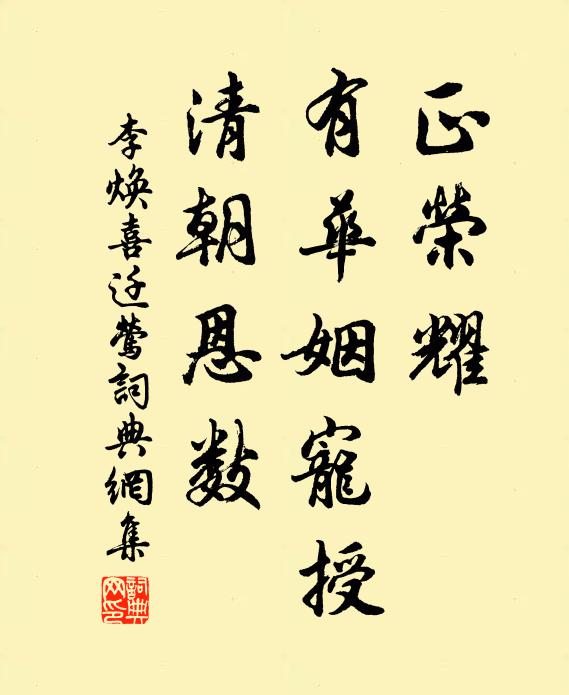 正榮耀
有華姻寵授
清朝恩數
李煥喜迁鶯詞典網集
詞典网印